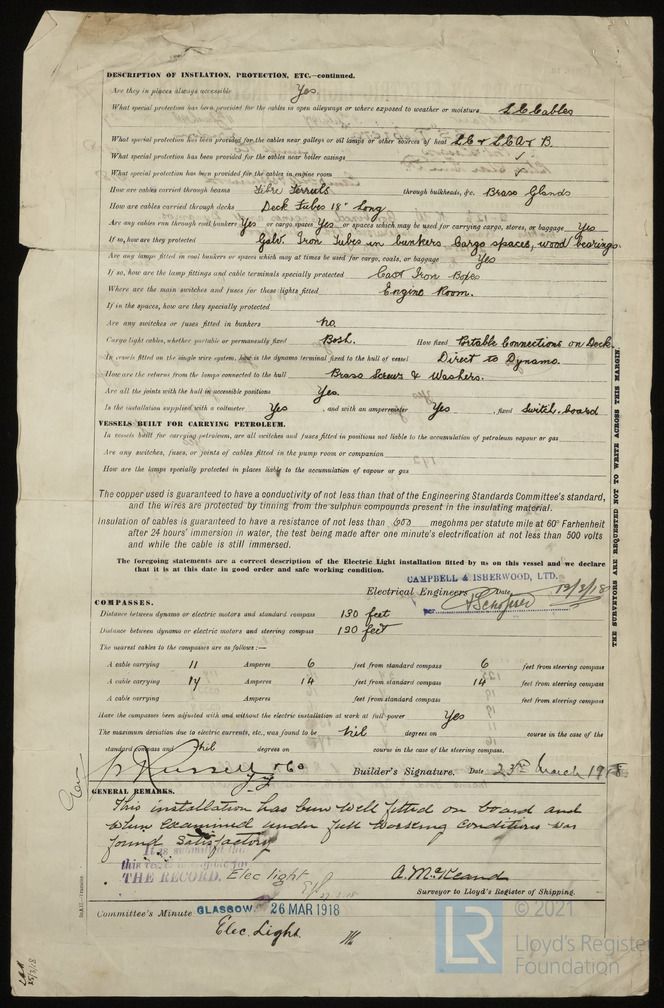 DESCRIPTION OF INSULATION, PROTECTION, ETC.—continued.
Are they in places always accessible Yes.
What special protection has been provided for the cables in open alleyways or where exposed to weather or moisture L.C. Cables
What special protection has been provided for the cables near galleys or oil lamps or other sources of heat L.C. & L.C.A. & B.
What special protection has been provided for the cables near boiler casings
What special protection has been provided for the cables in engine room
How are cables carried through beams Fibre Ferruls through bulkheads, &c. Brass Glands
How are cables carried through decks Deck Tubes 18" long
Are any cables run through coal bunkers Yes or cargo spaces Yes or spaces which may be used for carrying cargo, stores, or baggage Yes
If so, how are they protected Galv. Iron Tubes in bunkers. Cargo spaces, wood bearings.
Are any lamps fitted in coal bunkers or spaces which may at times be used for cargo, coals, or baggage Yes
If so, how are the lamp fittings and cable terminals specially protected Cast Iron Boxes
Where are the main switches and fuses for these lights fitted Engine Room.
If in the spaces, how are they specially protected
Are any switches or fuses fitted in bunkers No.
Cargo light cables, whether portable or permanently fixed Both. How fixed Portable Connections on Deck
In vessels fitted on the single wire system, how is the dynamo terminal fixed to the hull of vessel Direct to Dynamo.
How are the returns from the lamps connected to the hull Brass Screws & Washers.
Are all the joints with the hull in accessible positions Yes.
Is the installation supplied with a voltmeter Yes, and with an amperemeter Yes, fixed Switch board
VESSELS BUILT FOR CARRYING PETROLEUM.
In vessels built for carrying petroleum, are all switches and fuses fitted in positions not liable to the accumulation of petroleum vapour or gas
Are any switches, fuses, or joints of cables fitted in the pump room or companion
How are the lamps specially protected in places liable to the accumulation of vapour or gas
The copper used is guaranteed to have a conductivity of not less than that of the Engineering Standards Committee's standard,
and the wires are protected by tinning from the sulphur compounds present in the insulating material.
Insulation of cables is guaranteed to have a resistance of not less than 600 megohms per statute mile at 60° Farhenheit
after 24 hours' immersion in water, the test being made after one minute's electrification at not less than 500 volts
and while the cable is still immersed.
The foregoing statements are a correct description of the Electric Light installation fitted by us on this vessel and we declare
that it is at this date in good order and safe working condition.
CAMPBELL & ISHERWOOD, LTD.
Electrical Engineers Date 12/3/18
per
COMPASSES.
Distance between dynamo or electric motors and standard compass 130 feet
Distance between dynamo or electric motors and steering compass 120 feet
The nearest cables to the compasses are as follows:—
A cable carrying 11 Amperes 6 feet from standard compass 6 feet from steering compass
A cable carrying 14 Amperes 14 feet from standard compass 14 feet from steering compass
A cable carrying Amperes feet from standard compass feet from steering compass
Have the compasses been adjusted with and without the electric installation at work at full power Yes
The maximum deviation due to electric currents, etc., was found to be Nil degrees on course in the case of the
standard compass and Nil degrees on course in the case of the steering compass.
Russell & Co Builder's Signature. Date 23rd March 1918
GENERAL REMARKS.
This installation has been well fitted on board and
when examined under full working conditions was
found satisfactory
It is submitted that
this vessel is eligible for
THE RECORD. Elec light
A. McKeand
Surveyor to Lloyd's Register of Shipping.
Committee's Minute GLASGOW. 26 MAR 1918
Elec. Light.
THE SURVEYORS ARE REQUESTED NOT TO WRITE ACROSS THIS MARGIN.
© 2021
LR
Lloyd's Register
Foundation